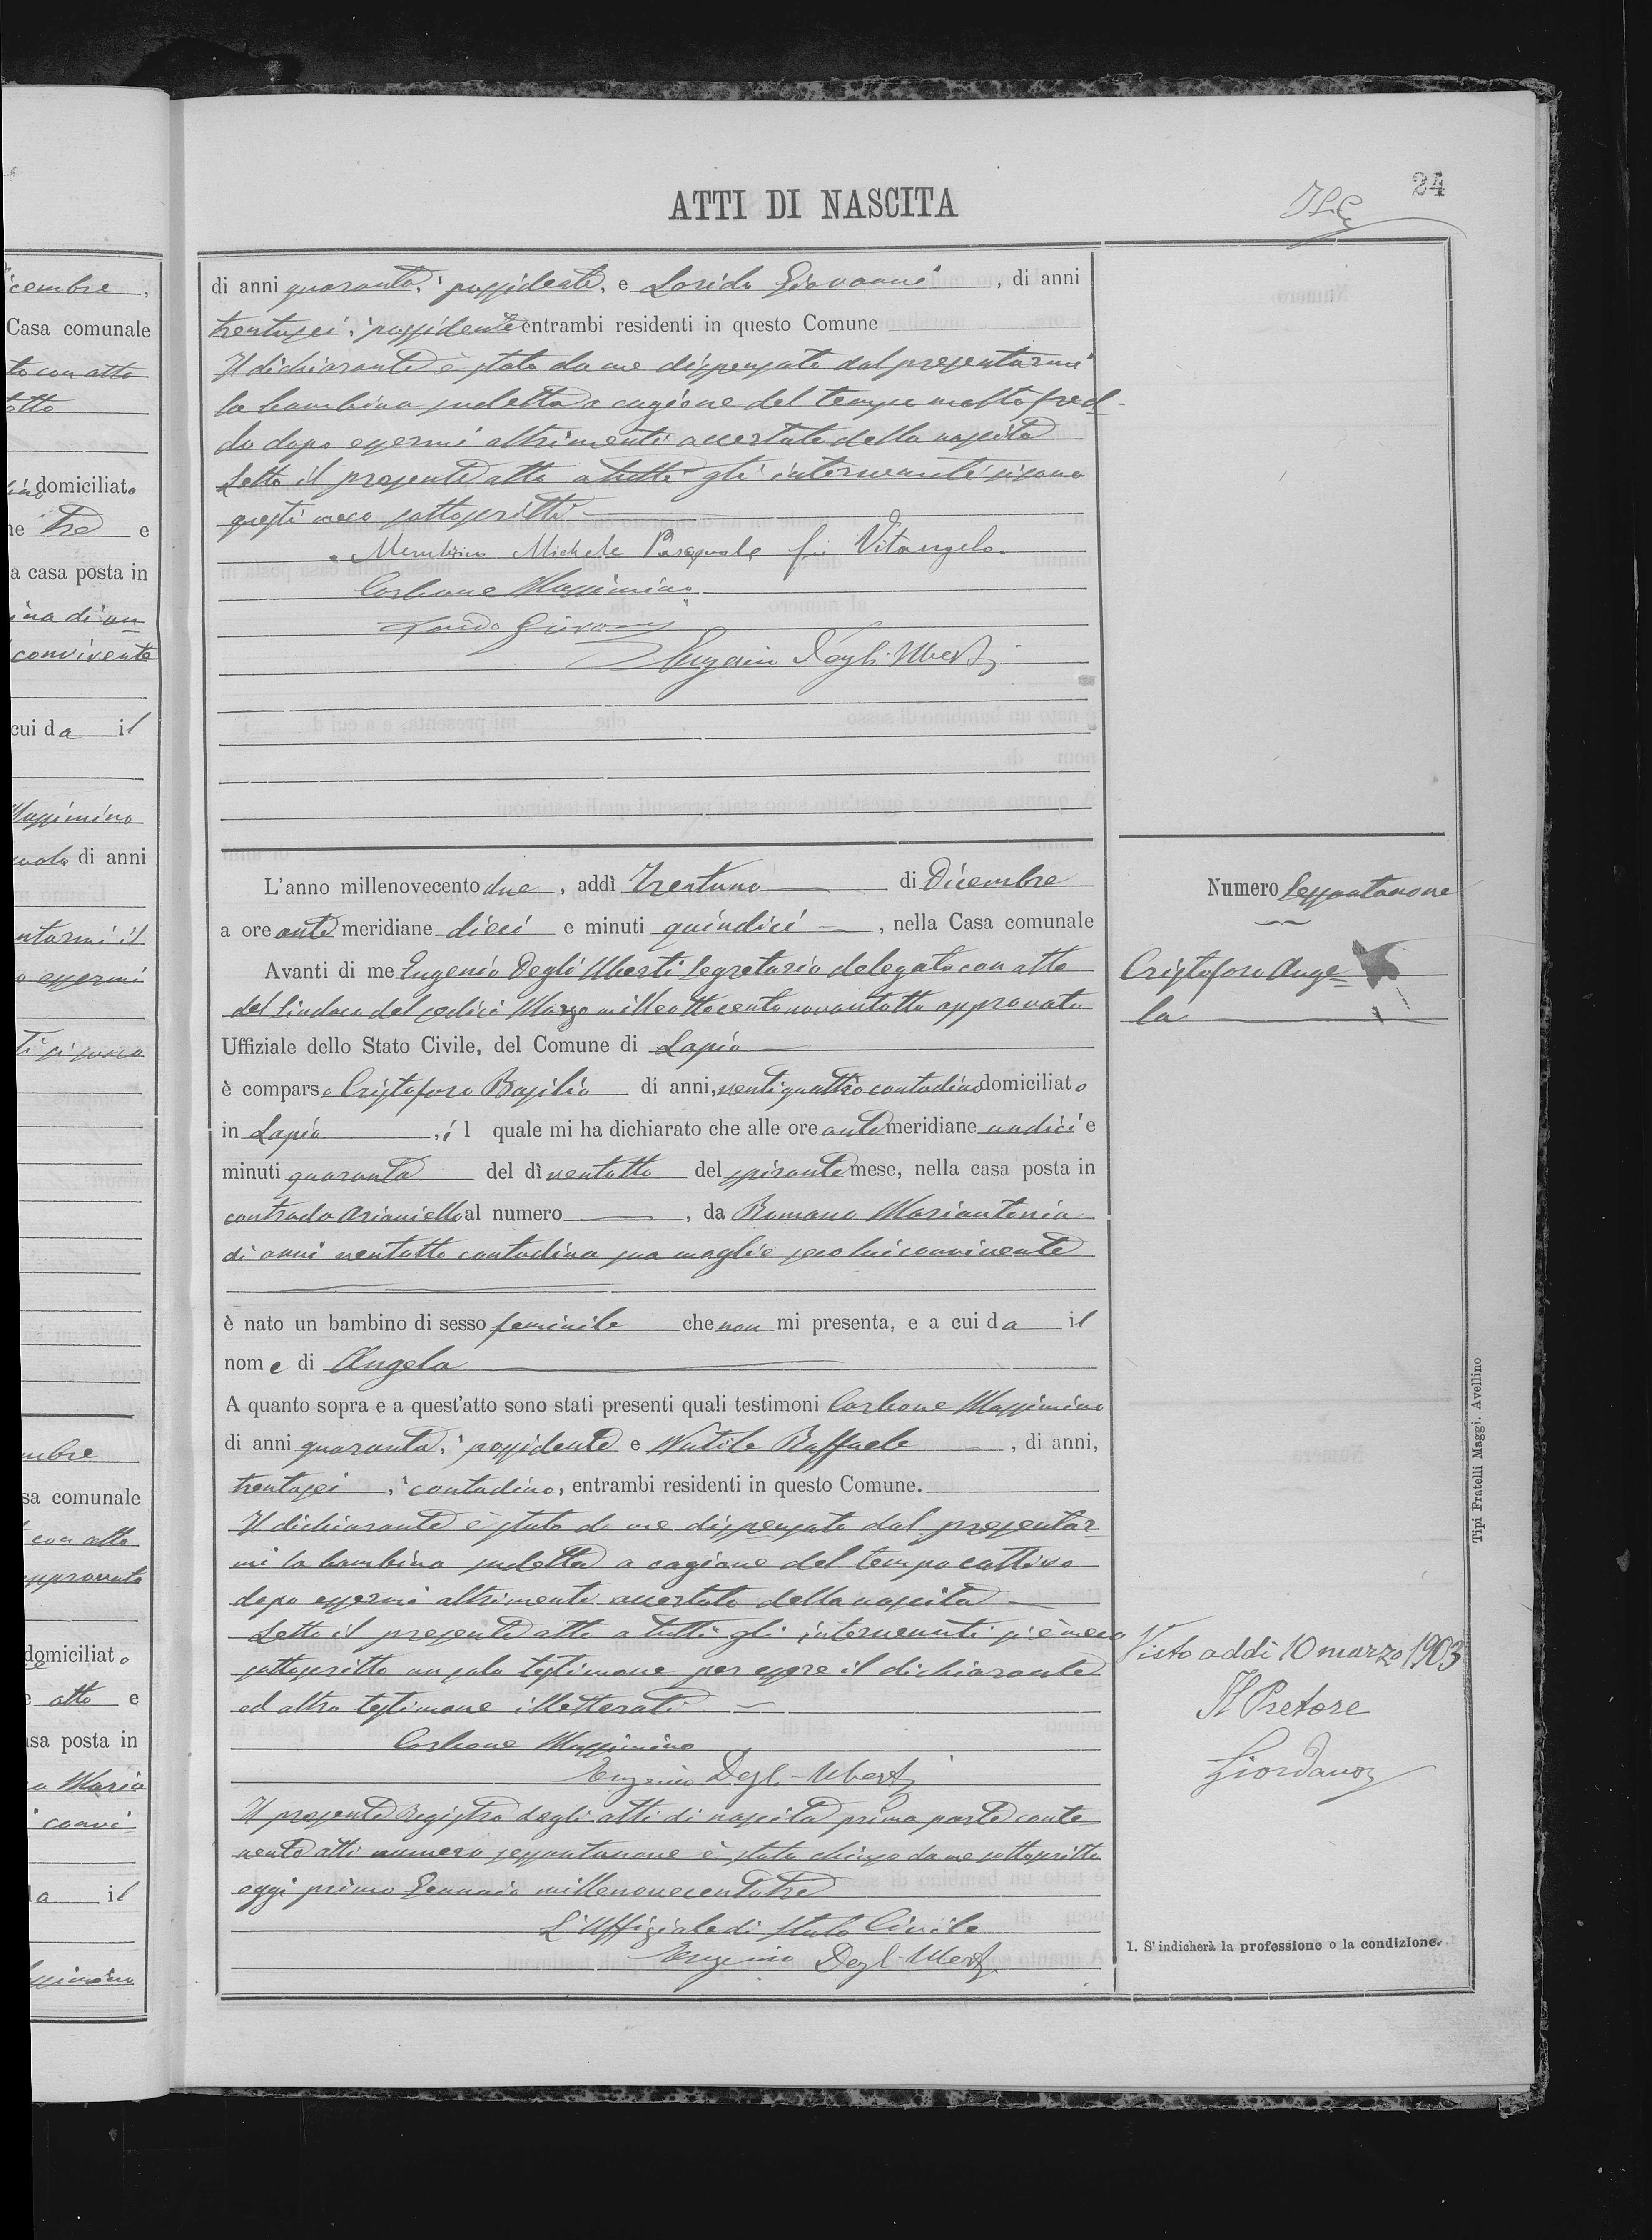 24
ATTI DI NASCITA
di anni quaranta, possidente, e Lorido Giovanni, di anni
trentasei, possidente entrambi residenti in questo Comune
Il dichiarante è stato da me dispensato dal presentarmi
la bambina sudetta a cagione del tempo molto fred-
do dopo essermi altrimenti accertato della nascita
Letto il presente atto a tutti gli intervenuti si sono
questi meco sottoscritti
Michele Pasquale fu Vitangelo
Carbone Massimino
Lorido Giovanni
Eugenio Degli Uberti
L'anno millenovecento due, addì Trentuno di Dicembre
a ore anti meridiane dieci e minuti quindici, nella Casa comunale
Avanti di me Eugenio Degli Uberti Segretario delegato con atto
del Sindaco del sedici Marzo milleottocentonovantotto approvato
Uffiziale dello Stato Civile, del Comune di Lapio
è comparso Cristofaro Basilio di anni, ventiquattro contadino domiciliato
in Lapio, il quale mi ha dichiarato che alle ore anti meridiane undici e
minuti quaranta del dì ventotto del spirante mese, nella casa posta in
contrada Arianiello al numero, da Romano Mariantonia
di anni ventotto contadina sua moglie seco lui convivente
è nato un bambino di sesso feminile che non mi presenta, e a cui da il
nome di Angela
A quanto sopra e a quest'atto sono stati presenti quali testimoni Carbone Massimino
di anni quaranta, possidente e Nutile Raffaele, di anni,
trentasei, contadino, entrambi residenti in questo Comune.
Il dichiarante è stato da me dispensato dal presentar
mi la bambina sudetta a cagione del tempo cattivo
dopo essermi altrimenti accertato della nascita
Letto il presente atto a tutti gli intervenuti si è meco
sottoscritto un solo testimone per essere il dichiarante
ed altro testimone illetterati
Carbone Massimino
Eugenio Degli Uberti
Il presente Registro degli atti di nascita prima parte conte
nente atti numero sessantanove è stato chiuso da me sottoscritto
oggi primo Gennaio millenovecentotre
L'Uffiziale di Stato Civile
Eugenio Degli Uberti
Numero Sessantanove
Cristofaro Ange-
la
Visto addì 10 marzo 1903
Il Pretore
Giordano
1. S'indicherà la professione o la condizione.
Tipi Fratelli Maggi. Avellino
icembre,
Casa comunale
to con atto
domiciliato
ne tre e
a casa posta in
convivente
cui da il
Massimino
di anni
ntarmi il
o essermi
mbre
sa comunale
con atto
approvato
domiciliato
e otto e
asa posta in
a Maria
convi
a il